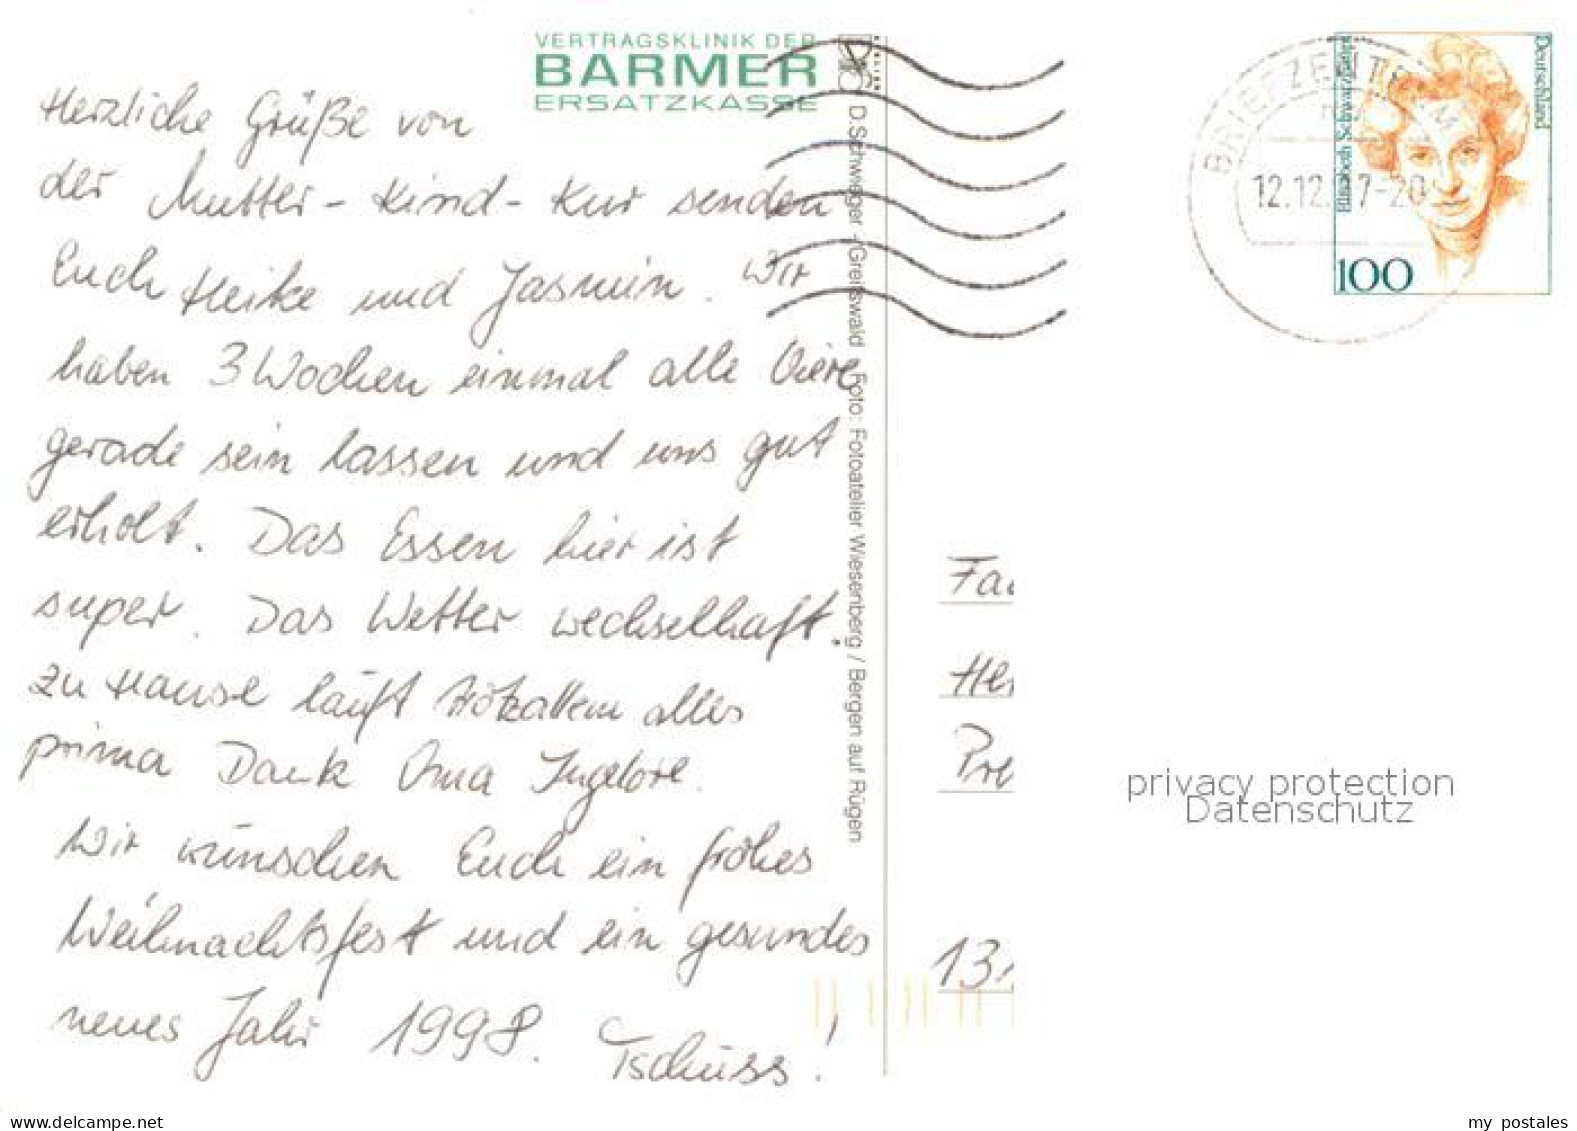 VERTRAGSKLINIK DER
BARMER
ERSATZKASSE
Herzliche Grüße von
der Mutter-Kind-Kur senden
Euch Heike und Jasmin. Wir
haben 3 Wochen einmal alle Viere
gerade sein lassen und uns gut
erholt. Das Essen hier ist
super. Das Wetter wechselhaft.
Zu Hause läuft trotzallem alles
prima Dank Oma Ingelore.
Wir wünschen Euch ein frohes
Weihnachtsfest und ein gesundes
neues Jahr 1998.
Tschüss!
D.Schwieger - Greifswald Foto: Fotoatelier Wiesenberg / Bergen auf Rügen
BRIEFZENTR
12.12. 97-20
Deutschland
Elisabeth Schwarzkopf
100
Fa
He
Pre
13
privacy protection
Datenschutz
www.delcampe.net
my_postales